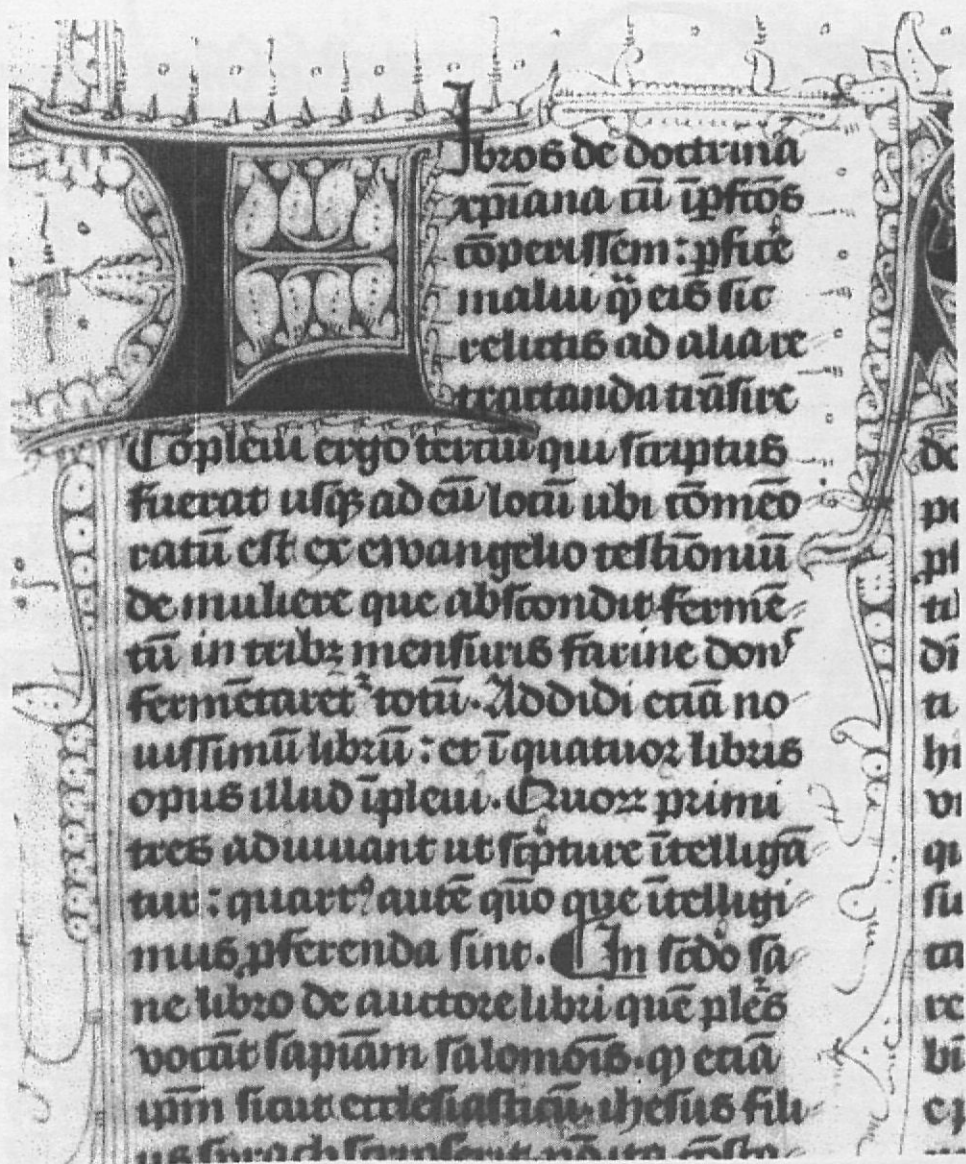 Libros de doctrina
xp̄iana cū īpfc̄os
cōperissem : p̱fic̄e
malui qͣ̄ eis sic
relictis ad alia re
tractanda trāsire
Cōpleui ergo terciū qui scriptus
fuerat usq̨ ad eū locū ubi cōmēo
ratū est ex ewangelio testīoniū
de muliere que abscondit fermē
tū in tribꝫ mensuris farine don
fermētaretᷣ totū. Addidi eciā no
uissimū librū : et ī quatuor libris
opus illud īpleui. Quoꝝ primi
tres adiuuant ut scͥpture ītelligā
tur : quartꝰ autē qͫo que ītelligi
mus ꝓferenda sint. In scd̄o sa
ne libro de auctore libri quē pleᷣs
vocāt sapiām salomōis. ꝙ eciā
ip̄m sicut ecclesiasticū ihesus fili
us syrach scripserit nō ita cōsta